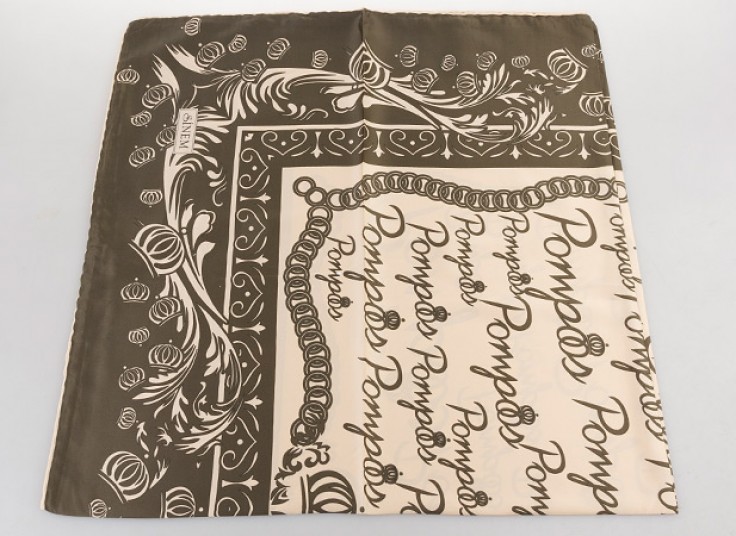 SİNEM
Pompöös
Pompöös
Pompöös
Pompöös
Pompöös
Pompöös
Pompöös
Pompöös
Pompöös
Pompöös
Pompöös
Pompöös
Pompöös